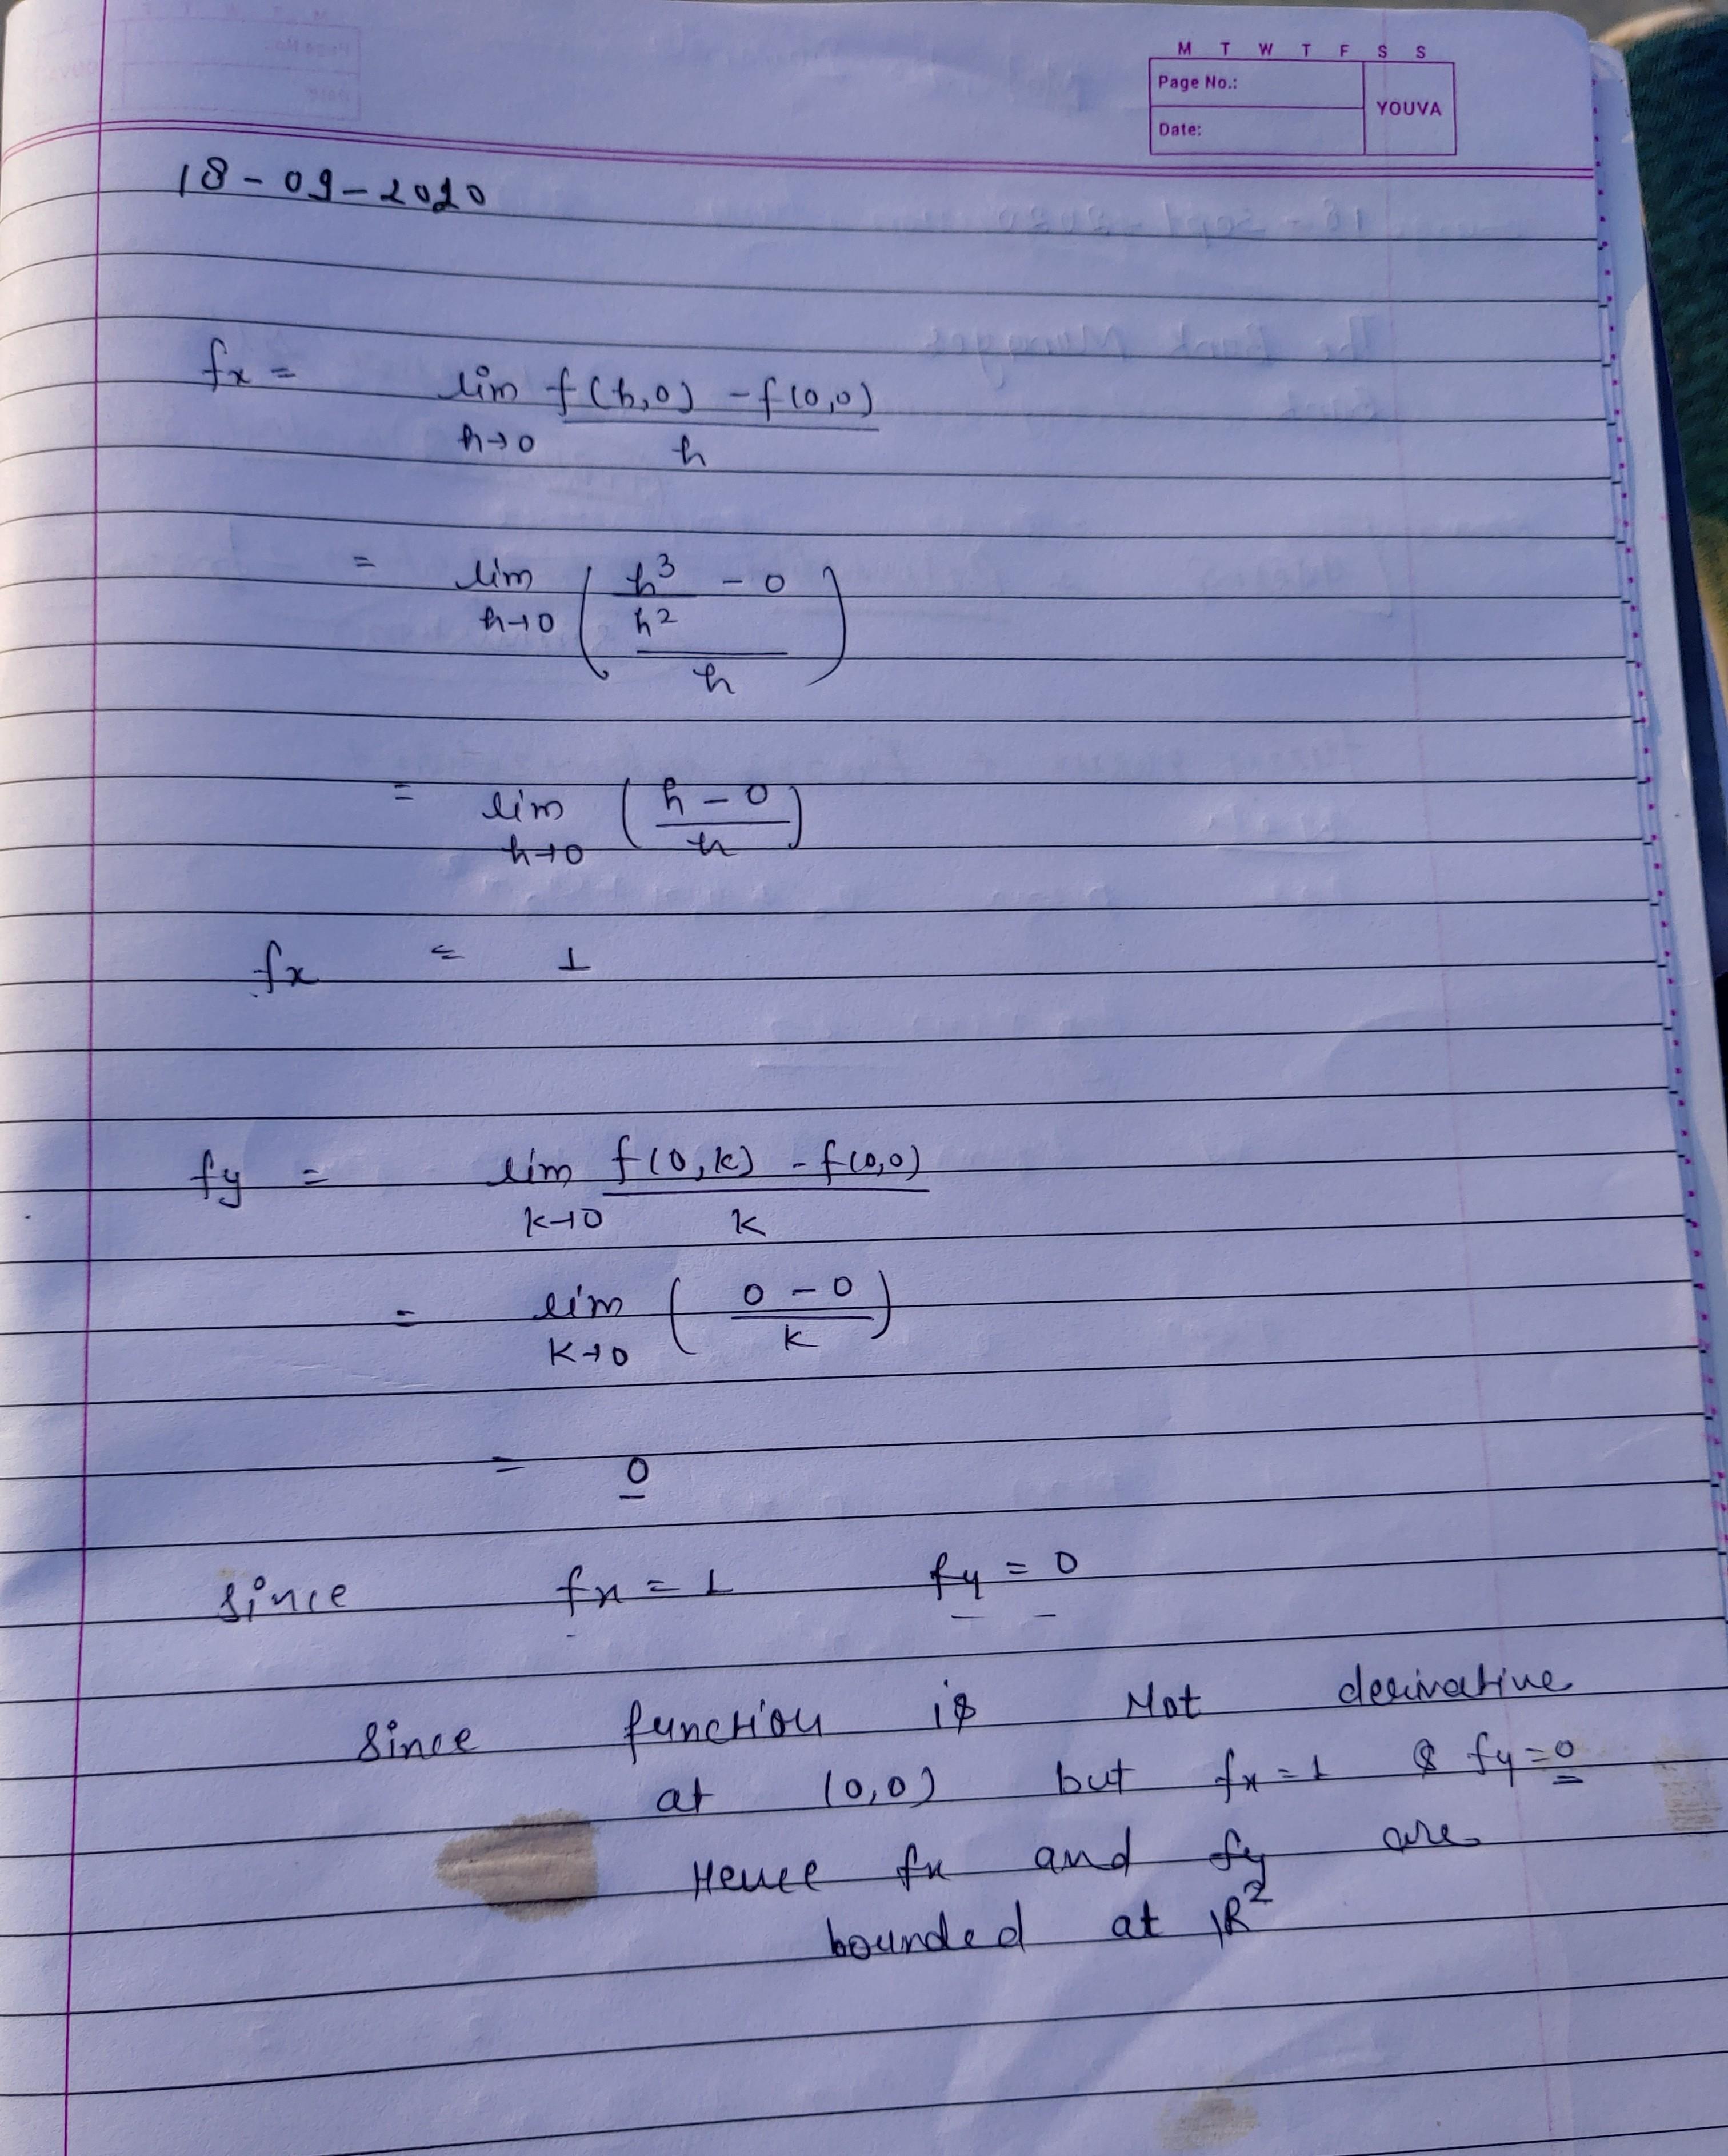 M T W T F S S
Page No.:
YOUVA
Date:
18-09-2020
fx = lim f(h,0) - f(0,0)
h→0 h
= lim ( h³ - 0 )
h→0 h²
h
= lim ( h - 0 )
h→0 h
fx = 1
fy = lim f(0,k) - f(0,0)
k→0 k
= lim ( 0 - 0 )
k→0 k
= 0
since fx = 1 fy = 0
since function is Not derivative
at (0,0) but fx = 1 & fy = 0
Hence fx and fy are
bounded at ℝ²